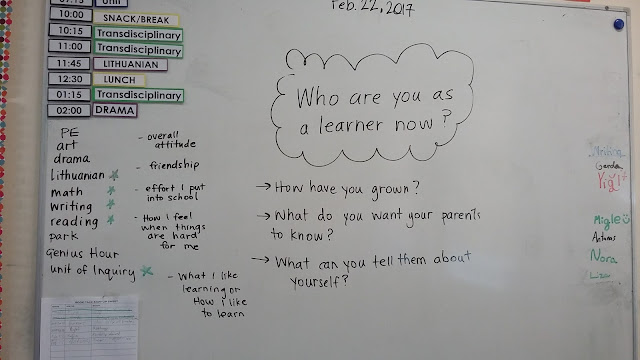 Feb. 22, 2017
Unit
10:00 SNACK/BREAK
10:15 Transdisciplinary
11:00 Transdisciplinary
11:45 LITHUANIAN
12:30 LUNCH
01:15 Transdisciplinary
02:00 DRAMA
PE
art
drama
Lithuanian
math
writing
reading
park
Genius Hour
unit of Inquiry
- overall
attitude
- friendship
- effort I put
into school
- How I feel
when things
are hard
for me
- What I like
learning or
How I like
to learn
Who are you as
a learner now?
→ How have you grown?
→ What do you want your parents
to know?
→ What can you tell them about
yourself?
Migle
Antanas
Nora